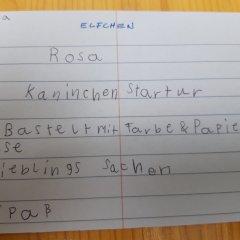 a
ELFCHEN
Rosa
Kaninchen Startur
Bastelt mit Farbe & Papie
se
ieblings Sachen
paß